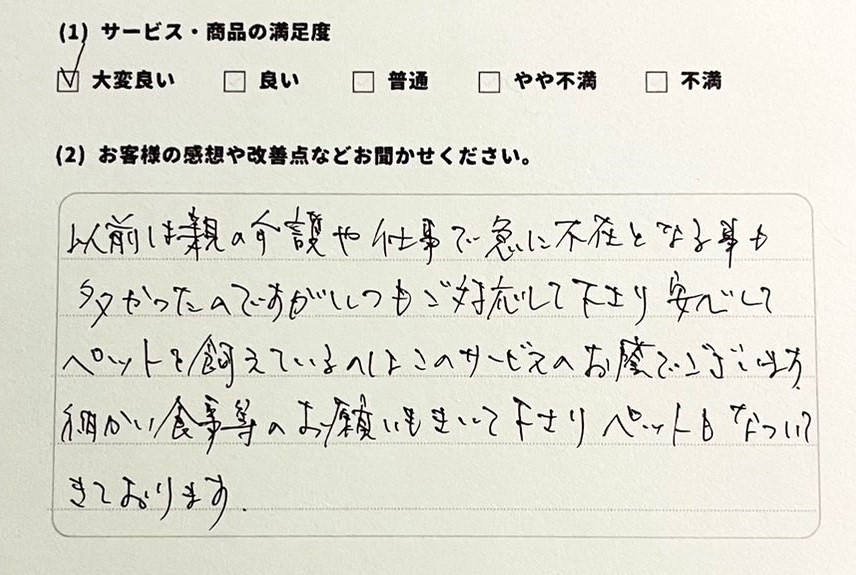 (1) サービス・商品の満足度
☑ 大変良い □ 良い □ 普通 □ やや不満 □ 不満
(2) お客様の感想や改善点などお聞かせください。
以前は親の介護や仕事で急に不在となる事も
多かったのですがいつもご対応して下さり 安心して
ペットを飼えているのはこのサービスのお蔭でございます。
細かい食事等のお願いもきいて下さり ペットも なついて
きております.